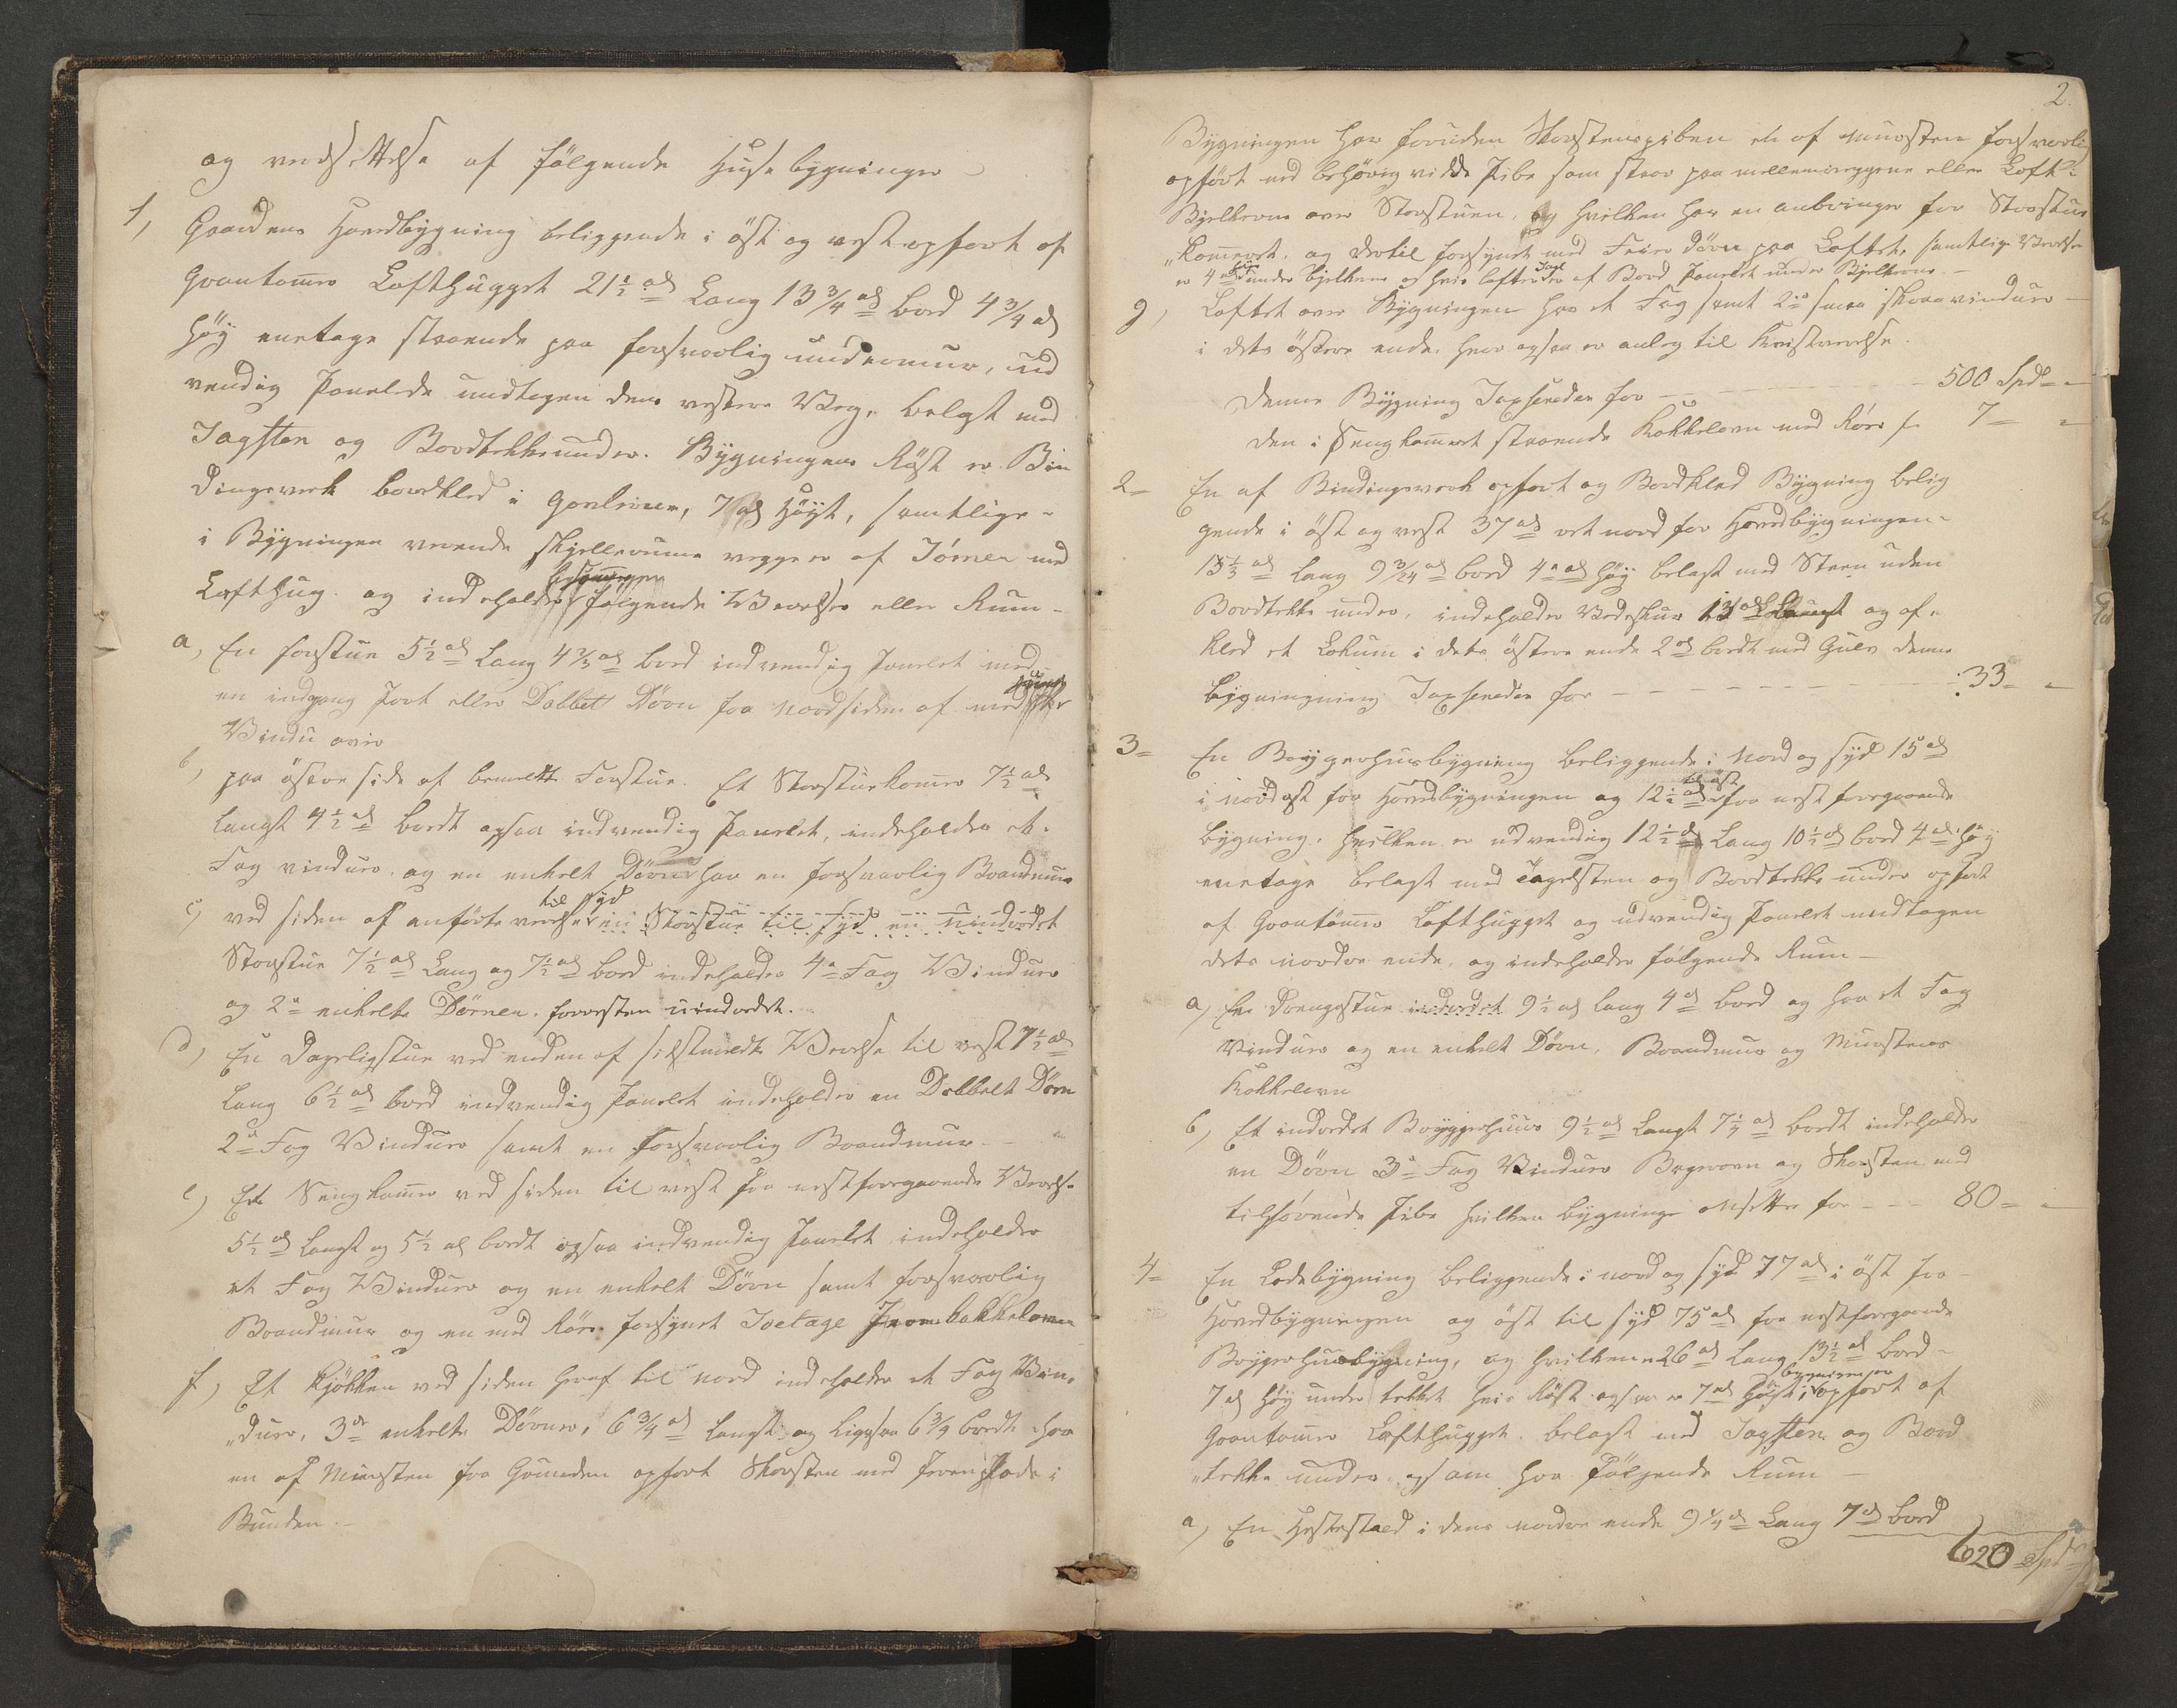 og verdsettelse af følgende Huse bygninger
1, Gaardens Hovedbygning beliggende i öst og vest opfört af
Grantømer Lofthugget 21 1/2 al Lang 13 3/4 al bred 4 3/4 al
höy enetage staaende paa forsvarlig undermur, ud
vendig Panelede undtagen dens vestere Veg, belagt med
Tagsten og Bordtekke under. Bygningens Röst er Bin
dingsverk bordkled i Gavlerne, 7 al Höyt, samtlige
i Bygningen verende skjellerums vegge er af Tömer med
Lofthug. og indeholder følgende Verelser eller Rum
a, En forstue 5 1/2 al Lang 4 2/3 al bred indvendig Panelet med
en indgang Port eller Dobbelt Dörn fra Nordsiden af med
Vindu over
b, paa östere side af bemeldte Forstue. Et Storstuekamer 7 1/2 al
langt 4 1/2 al bredt ogsaa indvendig Panelet, indeholder et
Fag vinduer og en enkelt Dörn har en forsvarlig Brandmur
til syd
c, ved siden af anförte verelse en Storstue til syd en uindredet
Storstue 7 1/2 al Lang og 7 1/2 al bred indeholder 4 Fag Vinduer
og 2 enkelte Dörner, foruresten uindredet.
d, En Dageligstue ved enden af sidstmeldte Verelse til vest 7 1/2 al
Lang 6 1/2 al bred indvendig Panelet indeholder en Dobbelt Dörn
2 Fag Vinduer samt en forsvarlig Brandmur
e, Et Sengkamer ved siden til vest for nestforegaaende Verelse
5 1/2 al Langt og 5 1/2 al bredt ogsaa indvendig Panelet indeholder
et Fag Vinduer og en enkelt Dörn samt forsvarlig
Brandmur og en med Rör forsynet Toetage Jernkakkelovn
f, Et Kjökken ved siden heraf til Nord indeholder et Fag Vin
„duer, 3de enkelte Dörner, 6 3/4 al langt og Ligesaa 6 3/4 bredt har
en af Mursten fra Grunden opfört Skorsten med Jernplade i
Bunden.
2.
Bygningen har foruden Skorstenspiben en af Mursten forsvarlig
opfört med behörig vidde Pibe som staar paa mellemveggene eller Loft
Bjelkerne over Storstuen, og hvilken har en anbringer for Storstue
„Kameret, og dertil forsynet med Feier Dörn paa Loftet, samtlige Verelser
er 4 al under bjelkerne og hvis lofter er af Bord Panelet under Bjelkerne
g, Loftet over Bygningen har et Fag samt 2de smaa skraavinduer
i dets östere ende, hvor ogsaa er anleg til Kvistverelse.
Denne Bygning Taxseredes for - - - 500 Spd
Den i Sengkameret staaende Kakkelovn med Rör f 7 =
2 = En af Bindingsverk opfört og Bordkled Bygning belig
gende i öst og vest 37 al ret nord for Hovedbygningen
13 1/3 al lang 9 3/24 al bred 4 al höy belagt med Steen uden
Bordtekke under, indeholder Vedeskur og af
kled et Lokum i dets östere ende 2 al bredt med Gulv denne
bygningning Taxseredes for - - - 33 =
3 = En Bryggerhusbygning beliggende i Nord og syd 15 al
til öst
i nordost for Hovedbygningen og 12 1/2 al fra nest foregaaende
bygning, hvilken er udvendig 12 1/2 al Lang 10 1/2 al bred 4 al höy
enetage belagt med Tagelsten og Bordtekke under opfört
af Grantömer Lofthugget og udvendig Panelet undtagen
dets nordre ende, og indeholder følgende Rum
a, En Drengestue indredet 9 1/2 al lang 4 al bred og har et Fag
Vinduer og en enkelt Dörn, Brandmur og Murstens
Kakkelovn
b, Et indredet Bryggerhuus 9 1/2 al Langt 7 1/4 al bredt indeholder
en Dörn 3 Fag Vinduer Bagerovn og Skorsten med
tilhörende Pibe hvilken bygning ansettes for - - - 80 =
4 = En Ladebygning beliggende i nord og syd 77 al i öst fra
Hovedbygningen og öst til syd 75 al fra nestforegaaende
Bryggerhusbygning, og hvilken er 26 al Lang 13 1/2 al bred
bygningen er
7 al höy under tekket hvis Röst ogsaa er 7 al höyt, opfört af
Grantömer Lofthugget. belagt med Tagsten og Bord
„tekke under, og som har følgende Rum
a, En Hestestald i dens nordre ende 9 1/4 al Lang 7 al bred
620 Spd